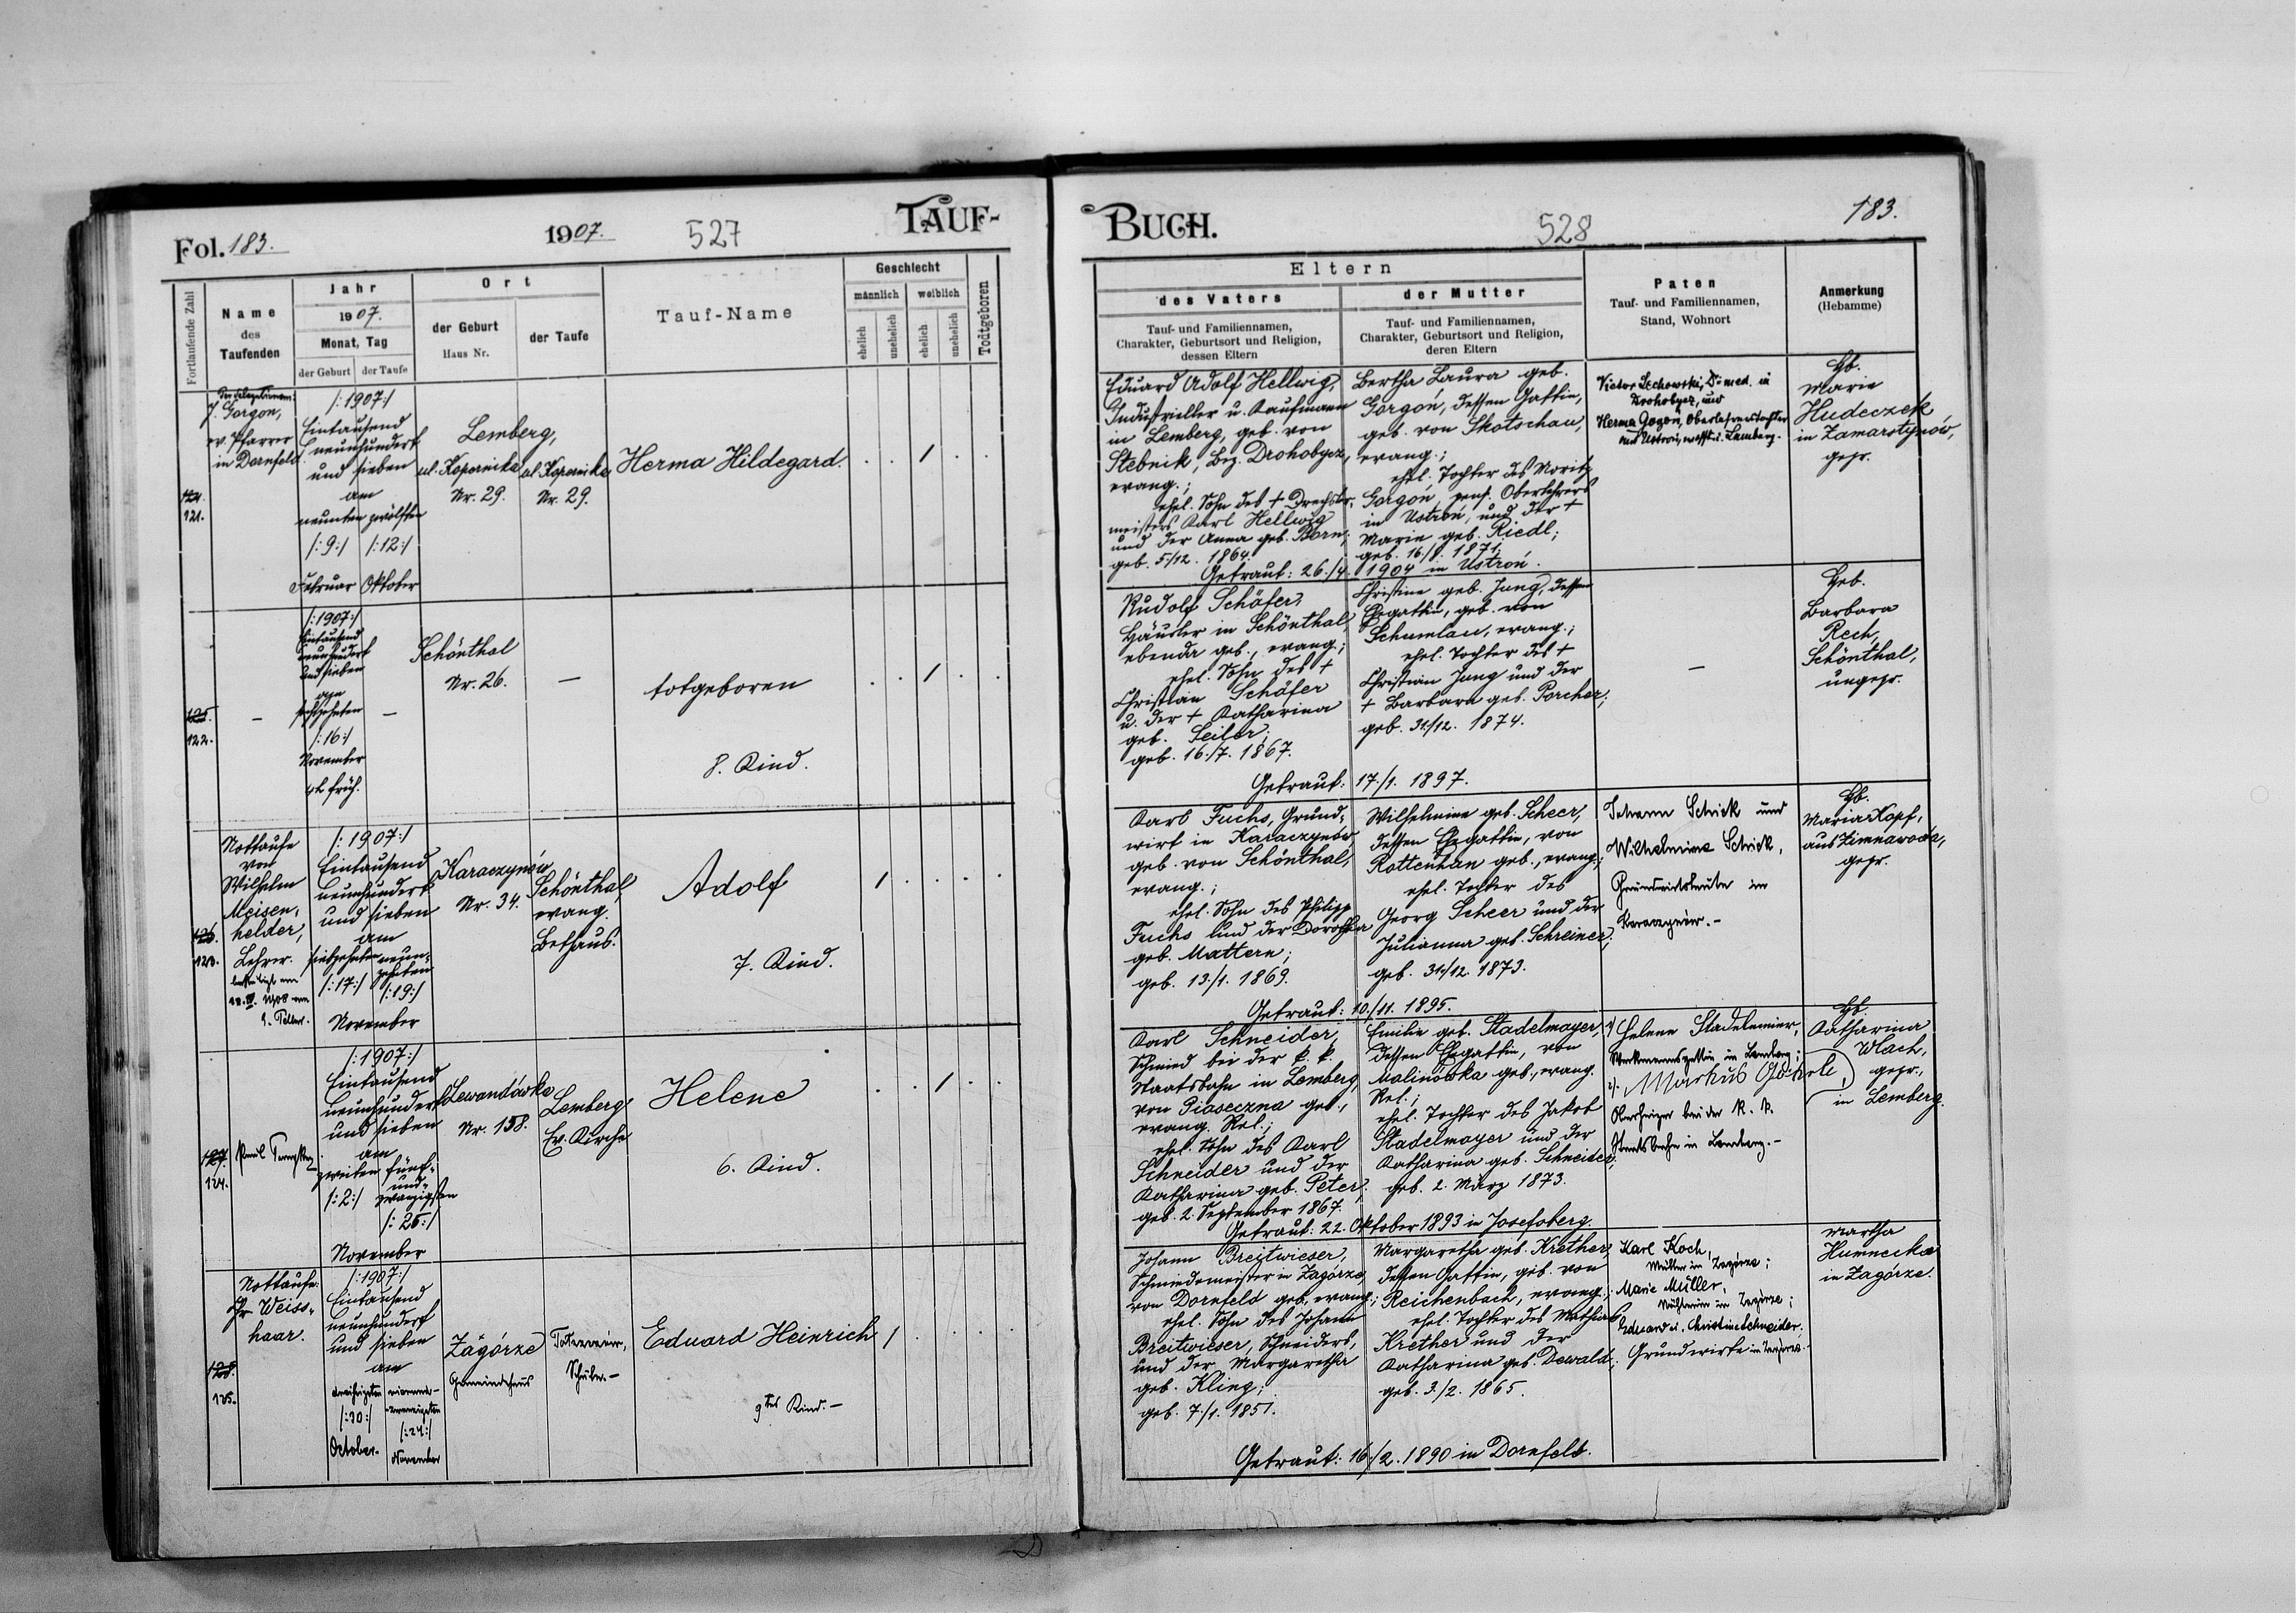 Fol. 183.
1907.
527
TAUF-
Fortlaufende Zahl
Name
des
Taufenden
Jahr
1907.
Monat, Tag
der Geburt
der Taufe
Ort
der Geburt
Haus Nr.
der Taufe
Tauf-Name
Geschlecht
männlich
weiblich
ehelich
unehelich
ehelich
unehelich
Todtgeboren
124.
121.
J. Gorgon,
ev. Pfarrer
in Dornfeld
/:1907:/
Eintausend
neunhundert
und sieben
am
neunten zwölften
/:9:/ /:12:/
Februar Oktober
Lemberg,
ul. Kopernika
Nr. 29.
ul. Kopernika
Nr. 29.
Herma Hildegard.
125.
122.
–
/:1907:/
Eintausend
neunhundert
und sieben
am
sechzehnten
/:16:/
November
früh.
–
Schönthal
Nr. 26.
–
totgeboren
8. Kind.
126.
123.
Nottaufe
von
Wilhelm
Meisen-
helder,
Lehrer.
/:1907:/
Eintausend
neunhundert
und sieben
am
siebzehnten neun-
zehnten
/:17:/ /:19:/
November
Karaczynów
Nr. 34.
Schönthal,
evang.
Bethaus.
Adolf
7. Kind.
127.
124.
/:1907:/
Eintausend
neunhundert
und sieben
am
zweiten fünf-
und-
zwanzigsten
/:2:/ /:25:/
November
Lewandówka
Nr. 158.
Lemberg
Ev. Kirche
Helene
6. Kind.
128.
125.
Nottaufe:
Hr. Weiss-
haar.
/:1907:/
Eintausend
neunhundert
und sieben
am
dreißigsten
/:30:/
October.
/:24:/
November
Zagórze
Gemeindehaus
Schule.–
Eduard Heinrich
9tes Kind.–
BUCH.
528
183.
Eltern
des Vaters
Tauf- und Familiennamen,
Charakter, Geburtsort und Religion,
dessen Eltern
der Mutter
Tauf- und Familiennamen,
Charakter, Geburtsort und Religion,
deren Eltern
Paten
Tauf- und Familiennamen,
Stand, Wohnort
Anmerkung
(Hebamme)
Eduard Adolf Hellwig,
Industrieller u. Kaufmann
in Lemberg, geb. von
Stebnik, Bez. Drohobycz,
evang.;
ehel. Sohn des + Drechsler-
meisters Karl Hellwig
und der Anna geb. Born;
geb. 5/12. 1864.
Bertha Laura geb.
Gorgoń, dessen Gattin,
geb. von Skotschau,
evang.;
ehel. Tochter des Moritz
Gorgoń, pens. Oberlehrers
in Ustroń, und der +
Marie geb. Riedl;
geb. 16./8. 1871.
Getraut: 26./4. 1904 in Ustroń.
Victor Lechowski, Dr med. in
Drohobycz, und
Hb.
Marie
Hudeczek
in Zamarstynów,
gepr.
Rudolf Schäfer,
Häusler in Schönthal,
ebenda geb., evang.;
ehel. Sohn des +
Christian Schäfer
u. der + Katharina
geb. Seiler;
geb. 16./7. 1867.
Christine geb. Jung, dessen
Ehegattin, geb. von
Schumlau, evang.;
ehel. Tochter des +
Christian Jung und der
+ Barbara geb. Porcher;
geb. 31./12. 1874.
Getraut: 17./1. 1897.
–
Heb.
Barbara
Rech,
Schönthal,
ungepr.
Karl Fuchs, Grund-
wirt in Karaczynów,
geb. von Schönthal,
evang.;
ehel. Sohn des Philipp
Fuchs und der Dorothea
geb. Mattern;
geb. 13./1. 1869.
Wilhelmine geb. Scheer,
dessen Ehegattin, von
Rottenhan geb., evang.;
ehel. Tochter des
Georg Scheer und der
Julianna geb. Schreiner;
geb. 31./12. 1873.
Getraut: 10./11. 1895.
Johann Schick und
Wilhelmine Schick,
Grundwirtsleute in
Karaczynów.–
Hb.
Maria Kopf,
aus Zimnawoda,
gepr.
Karl Schneider,
Schmied bei der k. k.
Staatsbahn in Lemberg,
von Piaseczna geb.,
evang. Rel.;
ehel. Sohn des Karl
Schneider und der
Katharina geb. Peter;
geb. 2. September 1867.
Emilie geb. Stadelmayer,
dessen Ehegattin, von
Malinówka geb., evang.
Rel.;
ehel. Tochter des Jakob
Stadelmayer und der
Katharina geb. Schneider,
geb. 2. März 1873.
Getraut: 22. Oktober 1893 in Josefsberg.
1) Helene Stadelmeier,
in Lemberg;
2). Markus
Oberheizer bei der K. k.
Staatsbahn in Lemberg.–
Hb.
Katharina
Wlach,
gepr.,
in Lemberg.
Johann Breitwieser,
Schmiedemeister in Zagórze
von Dornfeld geb., evang.;
ehel. Sohn des Johann
Breitwieser, Schneiders,
und der Margaretha
geb. Kling;
geb. 7./1. 1851.
Margaretha geb. Krether,
dessen Gattin, geb. von
Reichenbach, evang.;
ehel. Tochter des Mathias
Krether und der
Katharina geb. Dewald;
geb. 3./2. 1865.
Getraut: 16./2. 1890 in Dornfeld.
Karl Koch,
Müller in Zagórze;
Marie Müller,
in Zagórze;
Eduard u. Christine Schneider,
Grundwirte in Zagórze.
Martha
Humnecka
in Zagórze.